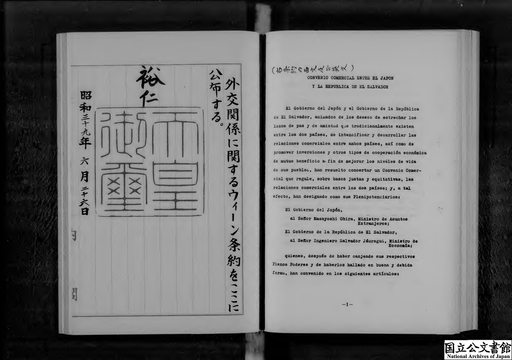 外交関係に関するウィーン条約をここに
公布する。
裕仁
天皇
御璽
昭和三十九年六月二十六日
CONVENIO COMERCIAL ENTRE EL JAPON
Y LA REPUBLICA DE EL SALVADOR
El Gobierno del Japón y el Gobierno de la República
de El Salvador, animados de los deseos de estrechar los
lazos de paz y de amistad que tradicionalmente existen
entre los dos países, de intensificar y desarrollar las
relaciones comerciales entre ambos países, así como de
promover inversiones y otros tipos de cooperación económica
de mutuo beneficio a fin de mejorar los niveles de vida
de sus pueblos, han resuelto concertar un Convenio Comer-
cial que regule, sobre bases justas y equitativas, las
relaciones comerciales entre los dos países; y, a tal
efecto, han designado como sus Plenipotenciarios:
El Gobierno del Japón,
al Señor Masayoshi Ohira, Ministro de Asuntos
Extranjeros;
El Gobierno de la República de El Salvador,
al Señor Ingeniero Salvador Jáuregui, Ministro de
Economía;
quienes, después de haber canjeado sus respectivos
Plenos Poderes y de haberlos hallado en buena y debida
forma, han convenido en los siguientes artículos:
-1-
国立公文書館
National Archives of Japan